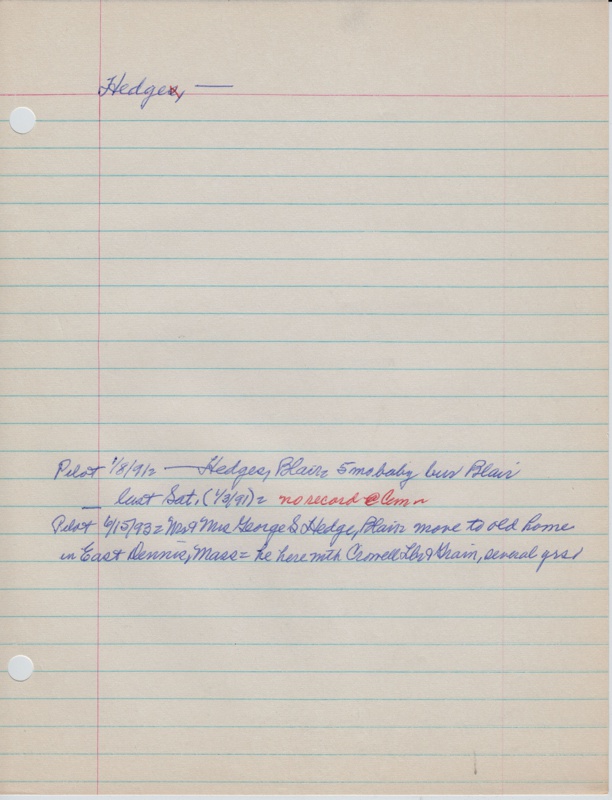 Hedges, —
Pilot 1/8/91= — Hedges, Blair= 5 mo baby bur Blair
— last Sat, (1/3/91)= no record @ Cem ~
Pilot 6/15/93= Mr & Mrs George S Hedge, Blair move to old home
in East Dennis, Mass= he here with Crowell Lbr & Grain, several yrs